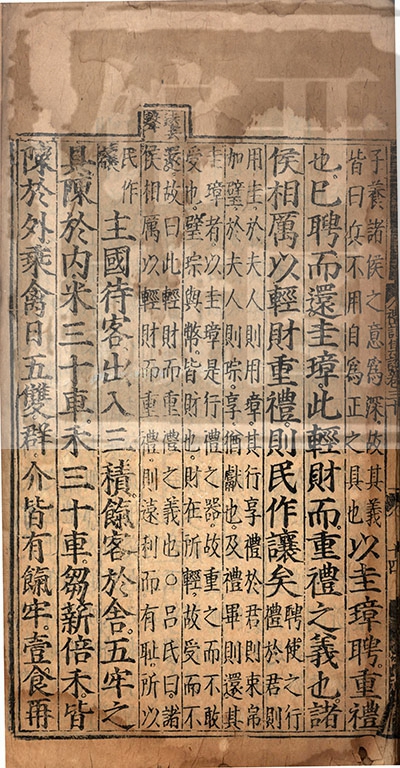 子養諸侯之意爲深故其義
皆曰兵不用自爲正之具也以圭璋聘重禮
也已聘而還圭璋此輕財而重禮之義也諸
侯相厲以輕財重禮則民作讓矣聘使之行禮於君則
用圭於夫人則用璋其行享禮於君則束帛
加璧於夫人則琮享猶獻也及禮畢則還其
圭璋者以圭璋是行禮之器故重之而不敢
受也璧琮與幣皆財也財在所輕故受而不
還故曰此輕財而重禮之義也○呂氏曰諸
侯相厲以輕財而重禮則遠利而有恥所以
民作讓主國待客出入三積餼客於舍五牢之
具陳於内米三十車禾三十車芻薪倍禾皆
陳於外乘禽日五雙群介皆有餼牢壹食再